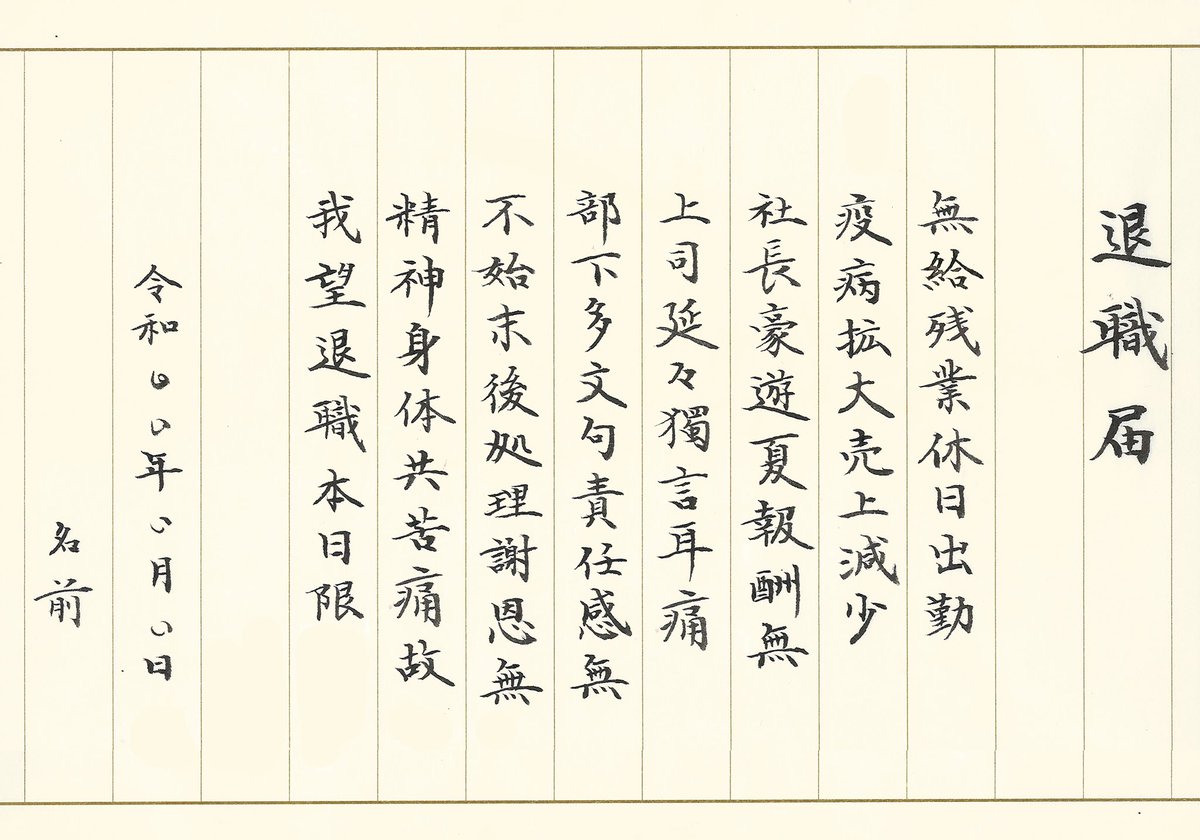 退職届
無給残業休日出勤
疫病拡大売上減少
社長豪遊夏報酬無
上司延々獨言耳痛
部下多文句責任感無
不始末後処理謝恩無
精神身体共苦痛故
我望退職本日限
令和〇〇年〇月〇日
名前